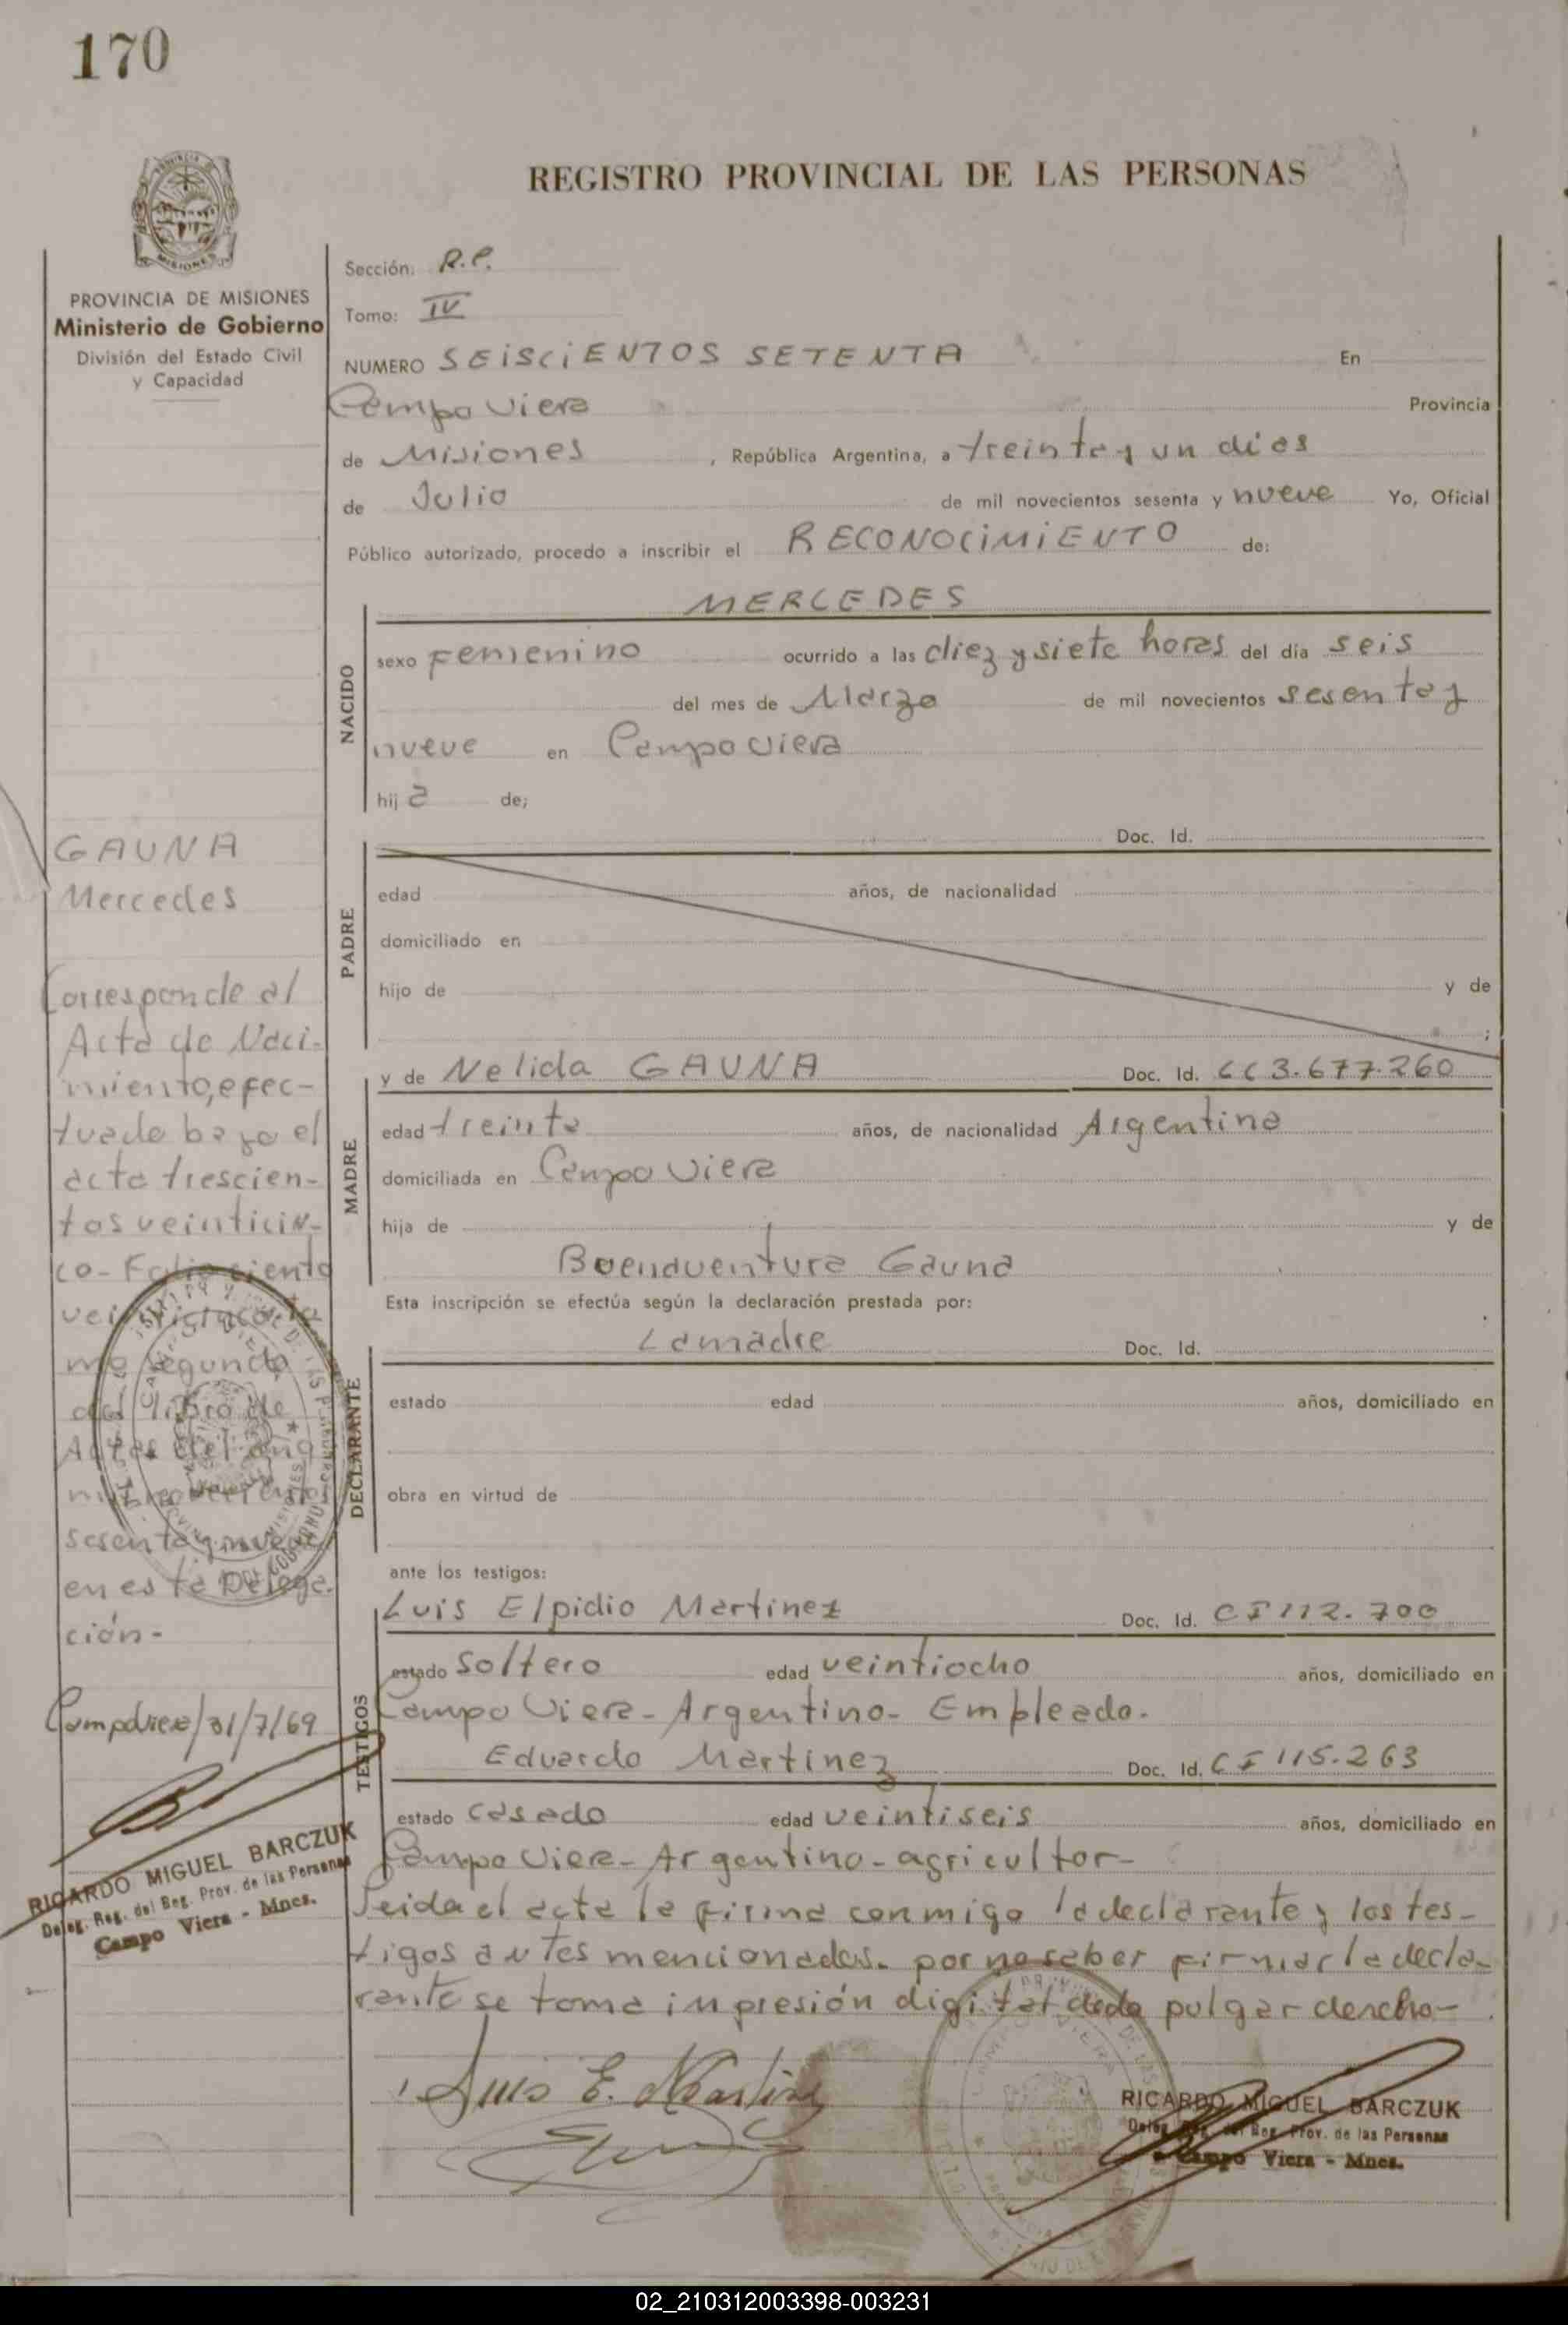 170
REGISTRO PROVINCIAL DE LAS PERSONAS
MISIONES
PROVINCIA DE MISIONES
Ministerio de Gobierno
División del Estado Civil
y Capacidad
Sección: R.P.
Tomo: IV
NUMERO SEISCIENTOS SETENTA En
Campo Viera Provincia
de Misiones , República Argentina, a treinta y un dias
de Julio de mil novecientos sesenta y nueve Yo, Oficial
Público autorizado, procedo a inscribir el RECONOCIMIENTO de:
NACIDO
MERCEDES
sexo Femenino ocurrido a las diez y siete horas del día seis
del mes de Marzo de mil novecientos sesenta y
nueve en Campo Viera
hij a de;
GAUNA
Mercedes
Corresponde al
Acta de Naci-
miento, efec-
tuado bajo el
acta trescien-
tos veinticin-
co- Folio ciento
segundo
del libro de
Actas del año
mil novecientos
sesenta y nueve
en esta Delega-
ción-
Campo Viera/31/7/69
RICARDO MIGUEL BARCZUK
Deleg. Reg. del Reg. Prov. de las Personas
Campo Viera - Mnes.
PADRE
Doc. Id.
edad años, de nacionalidad
domiciliado en
hijo de y de
;
MADRE
y de Nelida GAUNA Doc. Id. CC 3.677.260
edad treinta años, de nacionalidad Argentina
domiciliada en Campo Viera
hija de y de
Buenaventura Gauna
Esta inscripción se efectúa según la declaración prestada por:
DECLARANTE
La madre Doc. Id.
estado edad años, domiciliado en
obra en virtud de
ante los testigos:
TESTIGOS
Luis Elpidio Martinez Doc. Id. CI 112.700
estado Soltero edad veintiocho años, domiciliado en
Campo Viera- Argentino- Empleado.
Eduardo Martinez Doc. Id. CI 115.263
estado casado edad veintiseis años, domiciliado en
Campo Viera- Argentino- agricultor-
Leida el acta la firma conmigo la declarante y los tes-
tigos antes mencionados. por no saber firmar la decla-
rante se toma impresión digital dedo pulgar derecho-
Luis E. Martinez
RICARDO MIGUEL BARCZUK
Deleg. Reg. del Reg. Prov. de las Personas
Campo Viera - Mnes.
02_210312003398-003231